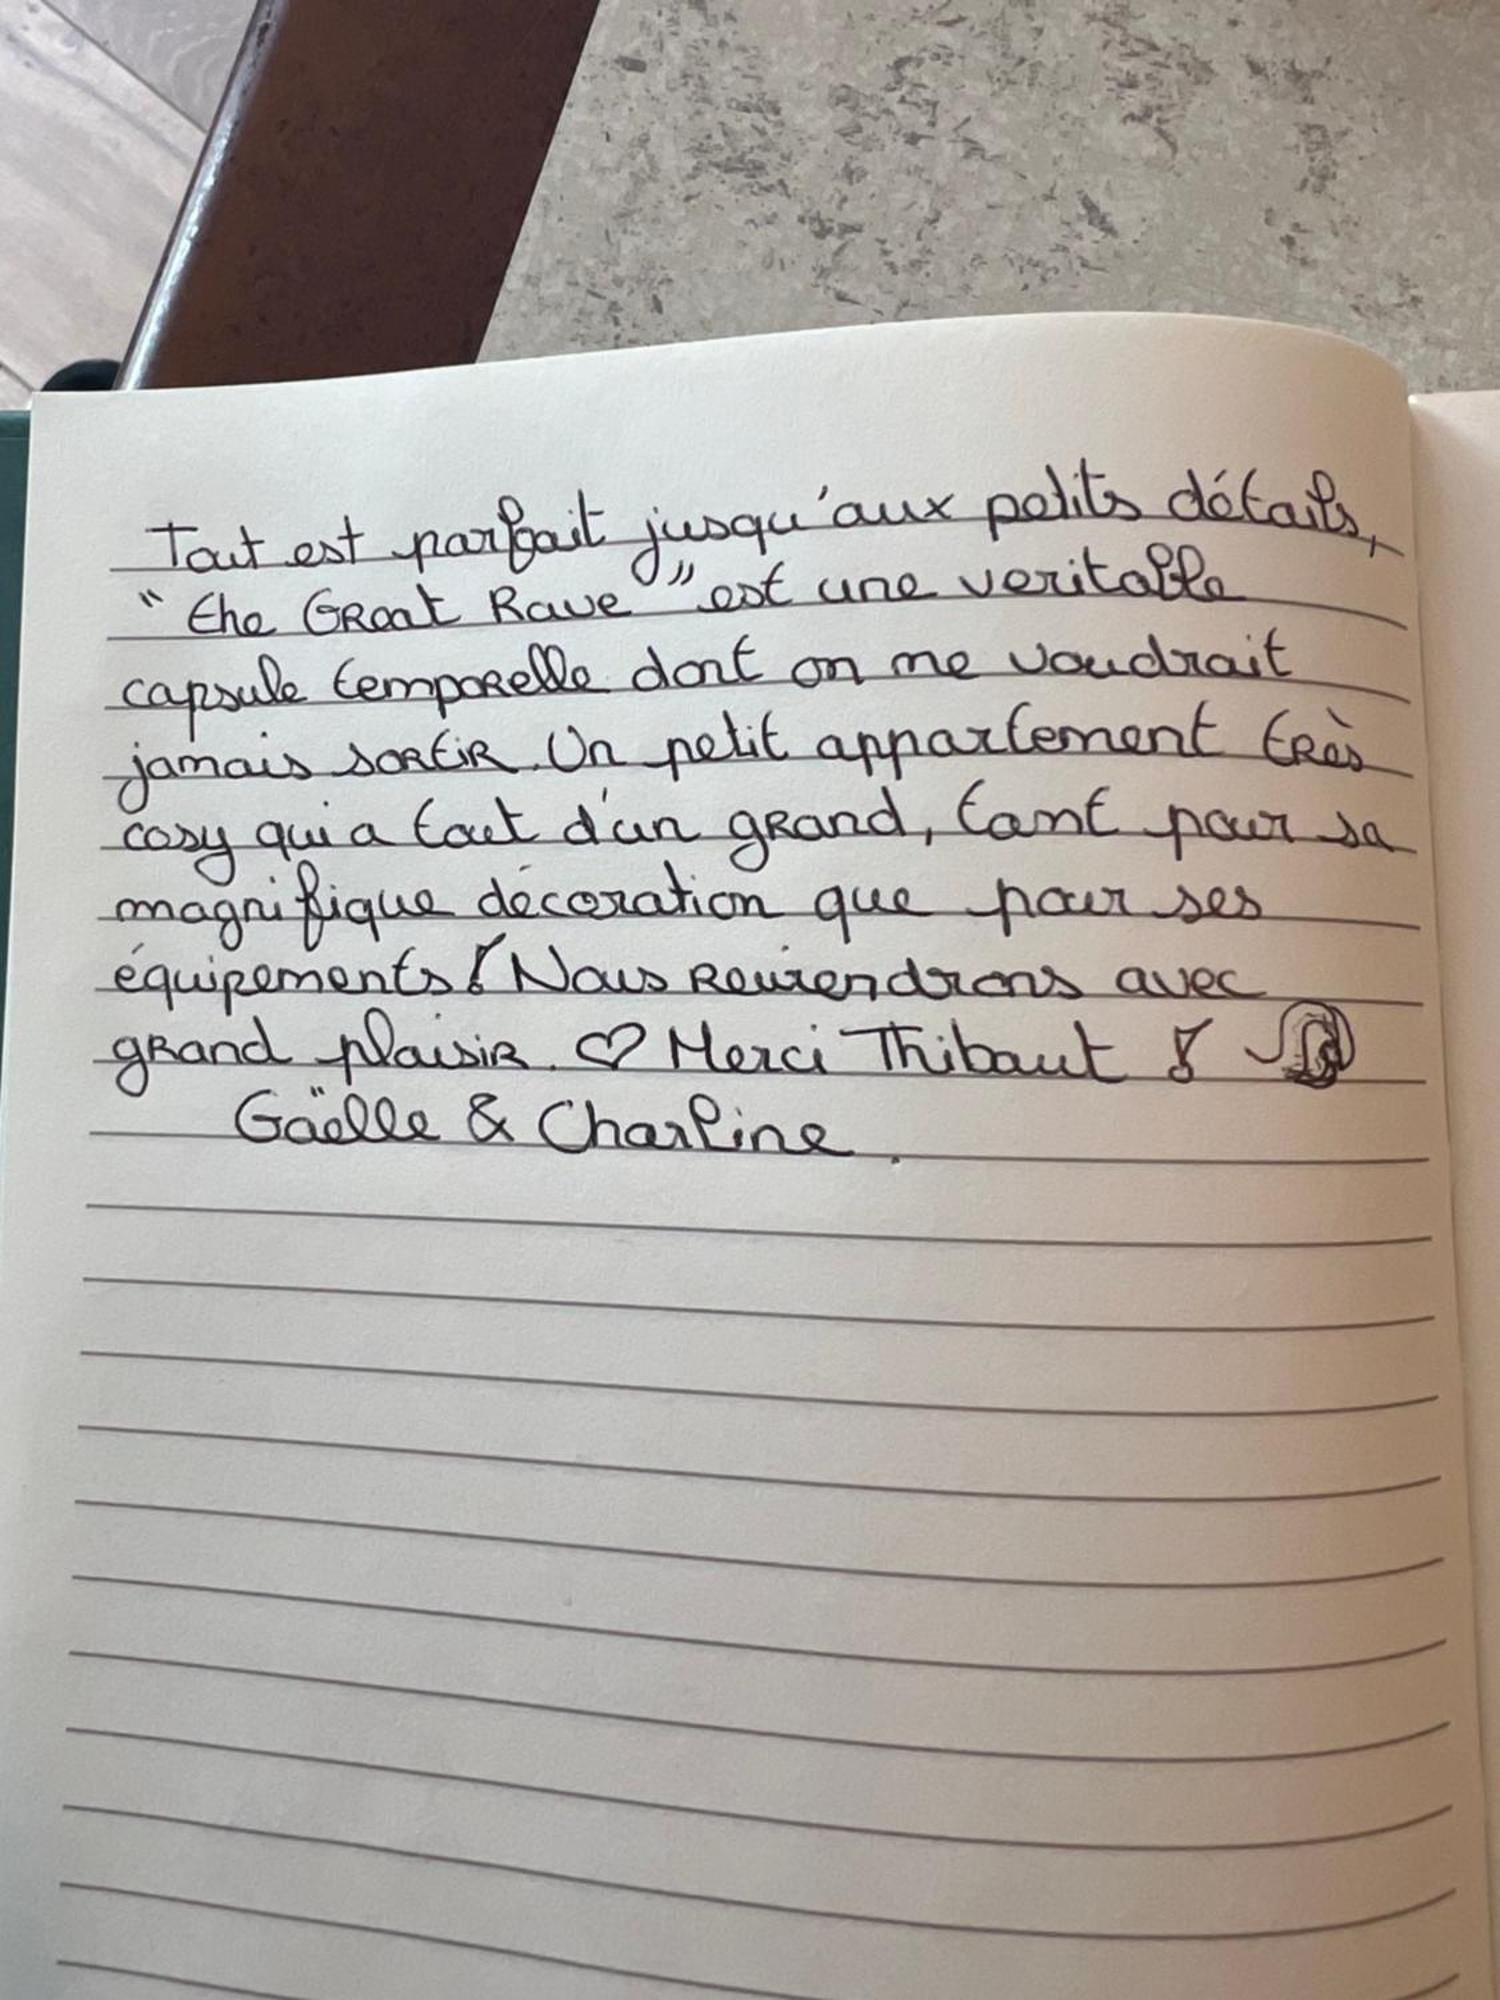 Tout est parfait jusqu'aux petits détails,
"the Great Rave" est une veritable
capsule temporelle dont on ne voudrait
jamais sortir. Un petit appartement très
cosy qui a tout d'un grand, tant pour sa
magnifique décoration que pour ses
équipements! Nous reviendrons avec
grand plaisir. ♡ Merci Thibaut !
Gaëlle & Charline.